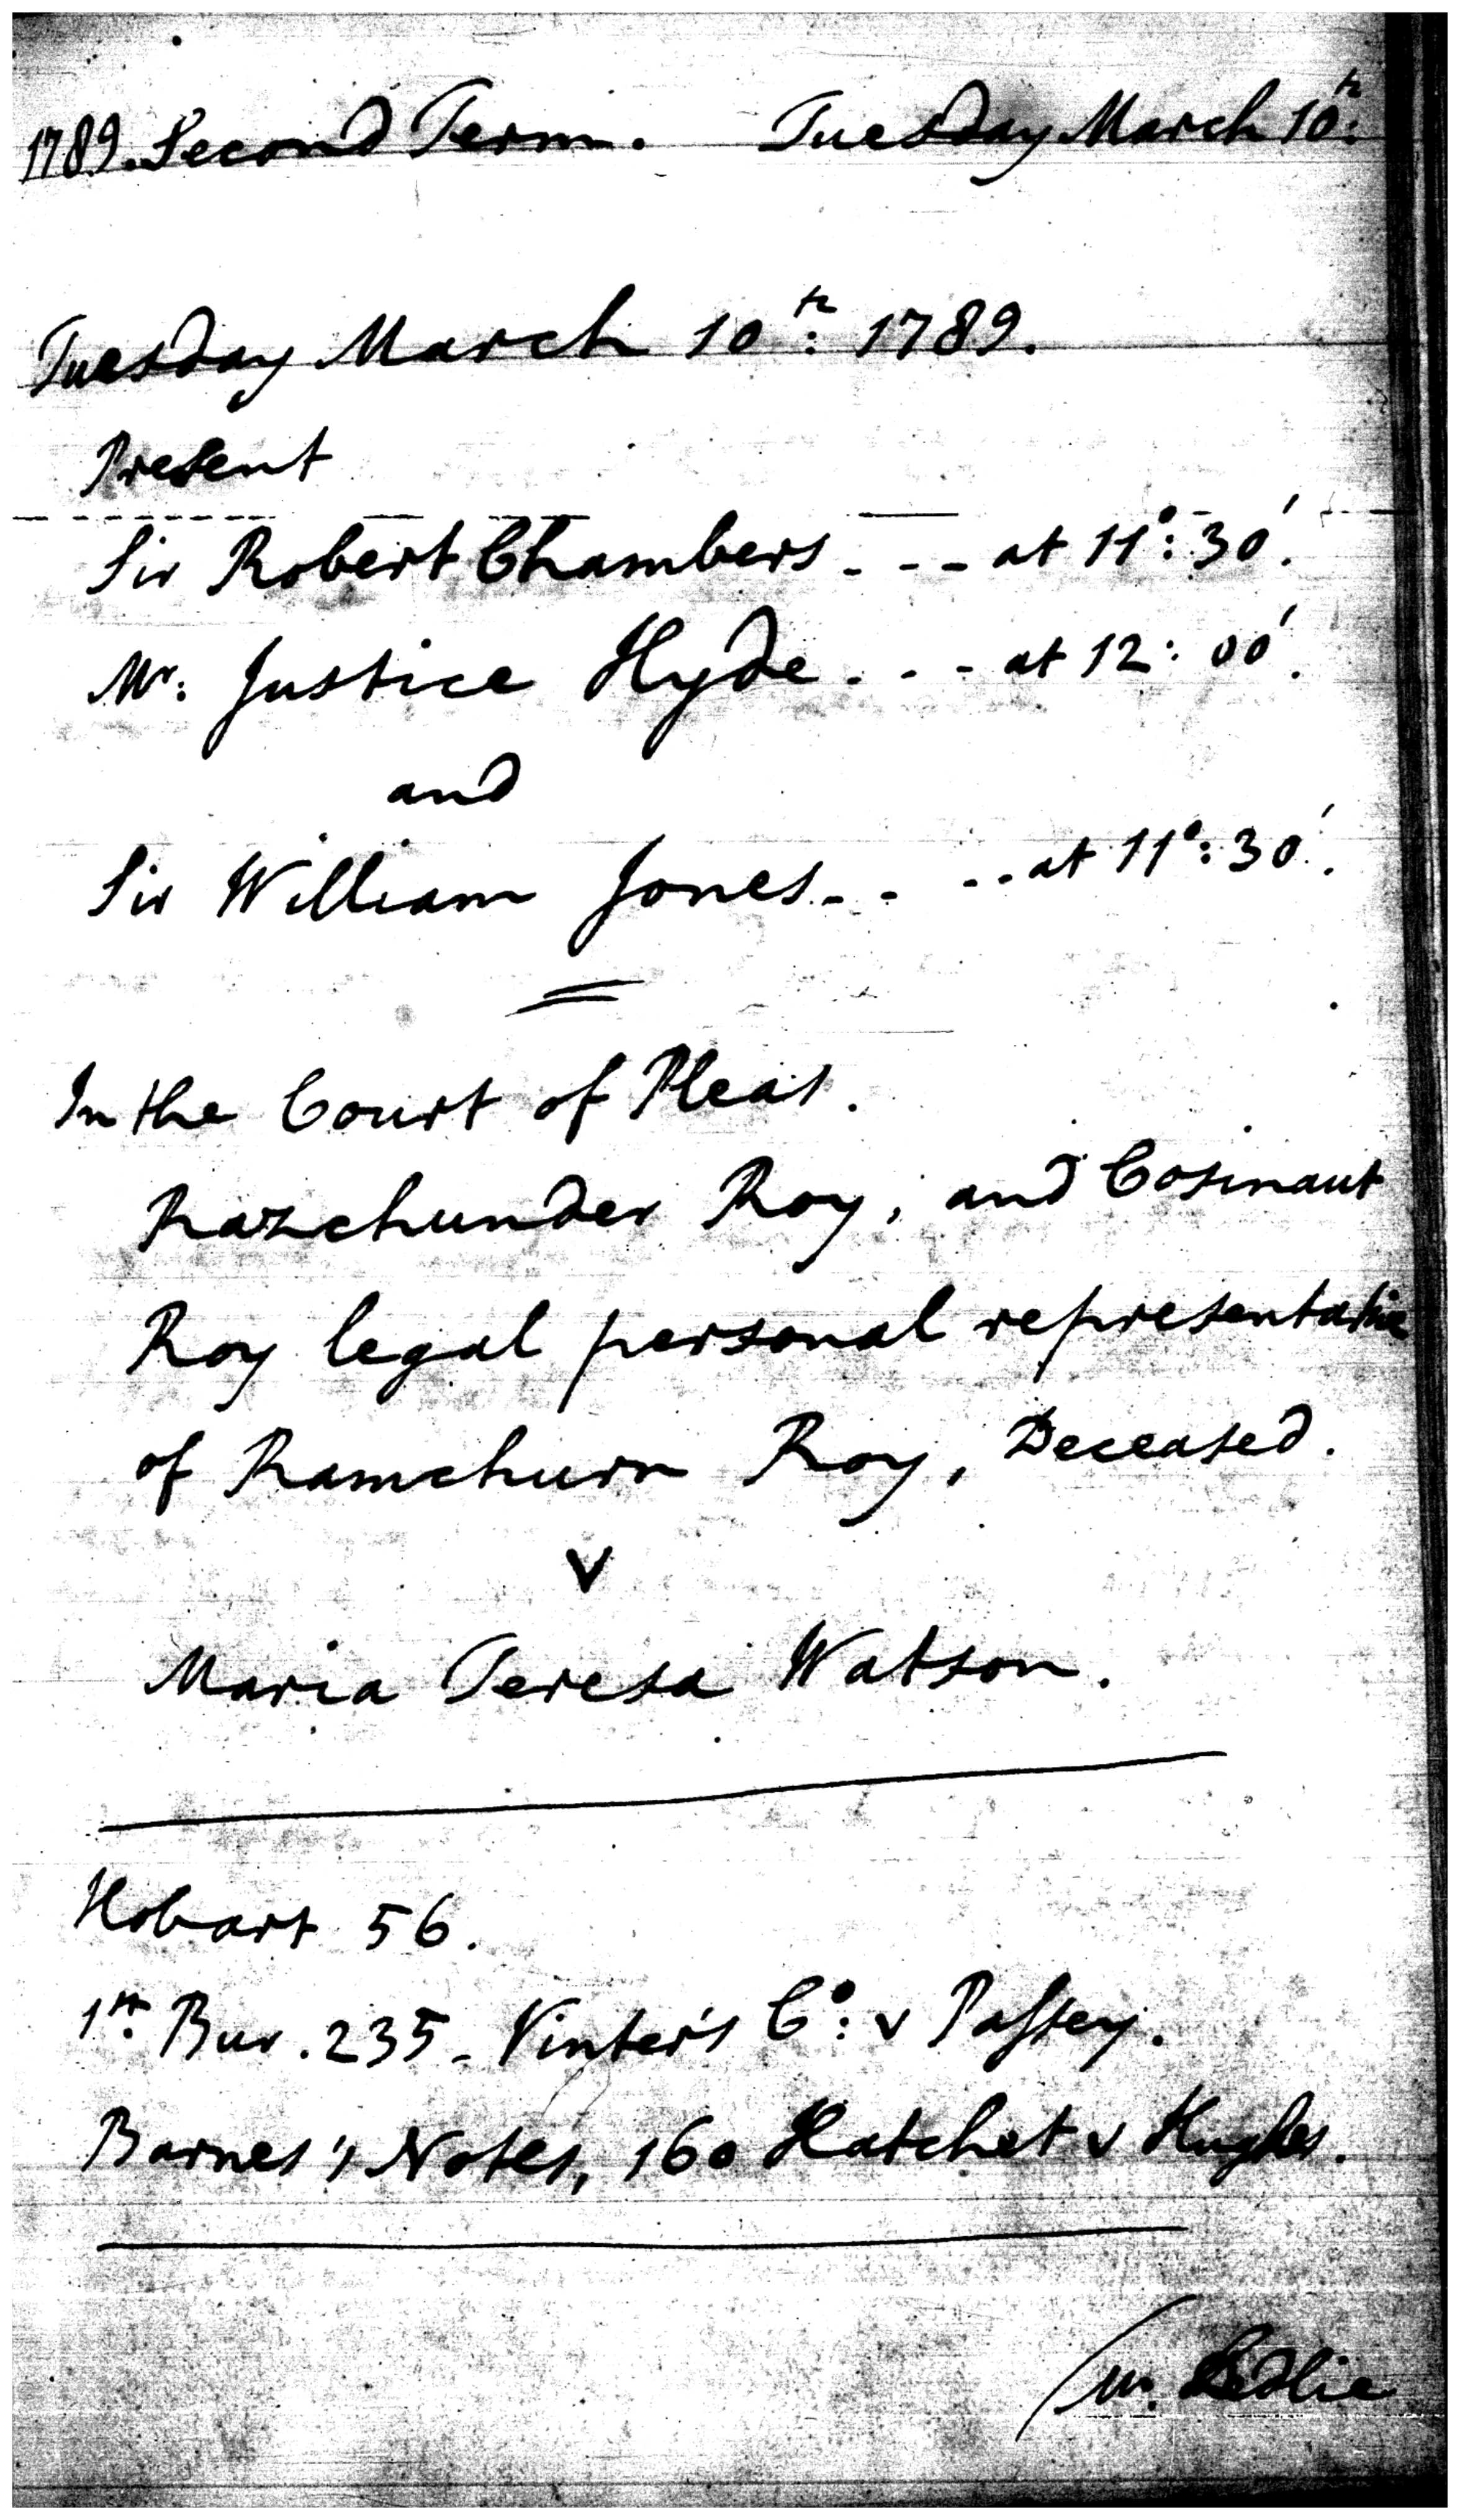 1789. Second Term. Tuesday March 10th:
Tuesday March 10th: 1789.
Present
Sir Robert Chambers - - - at 11°: 30'.
Mr: Justice Hyde . - - at 12: 00'.
and
Sir William Jones - - - - at 11°: 30'.
In the Court of Pleas.
Razchunder Roy, and Cosinaut
Roy legal personal representative
of Ramchurn Roy, Deceased.
v
Maria Teresa Watson.
Hobart 56.
1st: Bur. 235 - Vinter's Co: v Passey.
Barnes's Notes, 160 Hatchet v Hughes.
(Mr. Ledlie